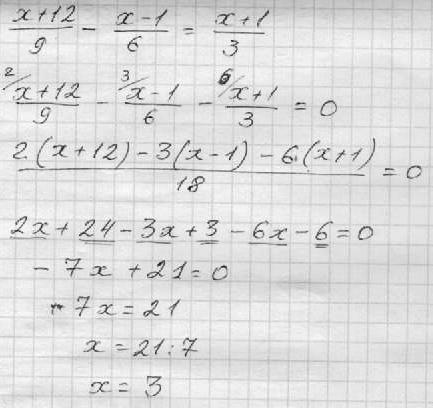 (x+12)/9 - (x-1)/6 = (x+1)/3
2/(x+12)/9 - 3/(x-1)/6 - 6/(x+1)/3 = 0
(2(x+12) - 3(x-1) - 6(x+1))/18 = 0
2x + 24 - 3x + 3 - 6x - 6 = 0
- 7x + 21 = 0
- 7x = 21
x = 21:7
x = 3